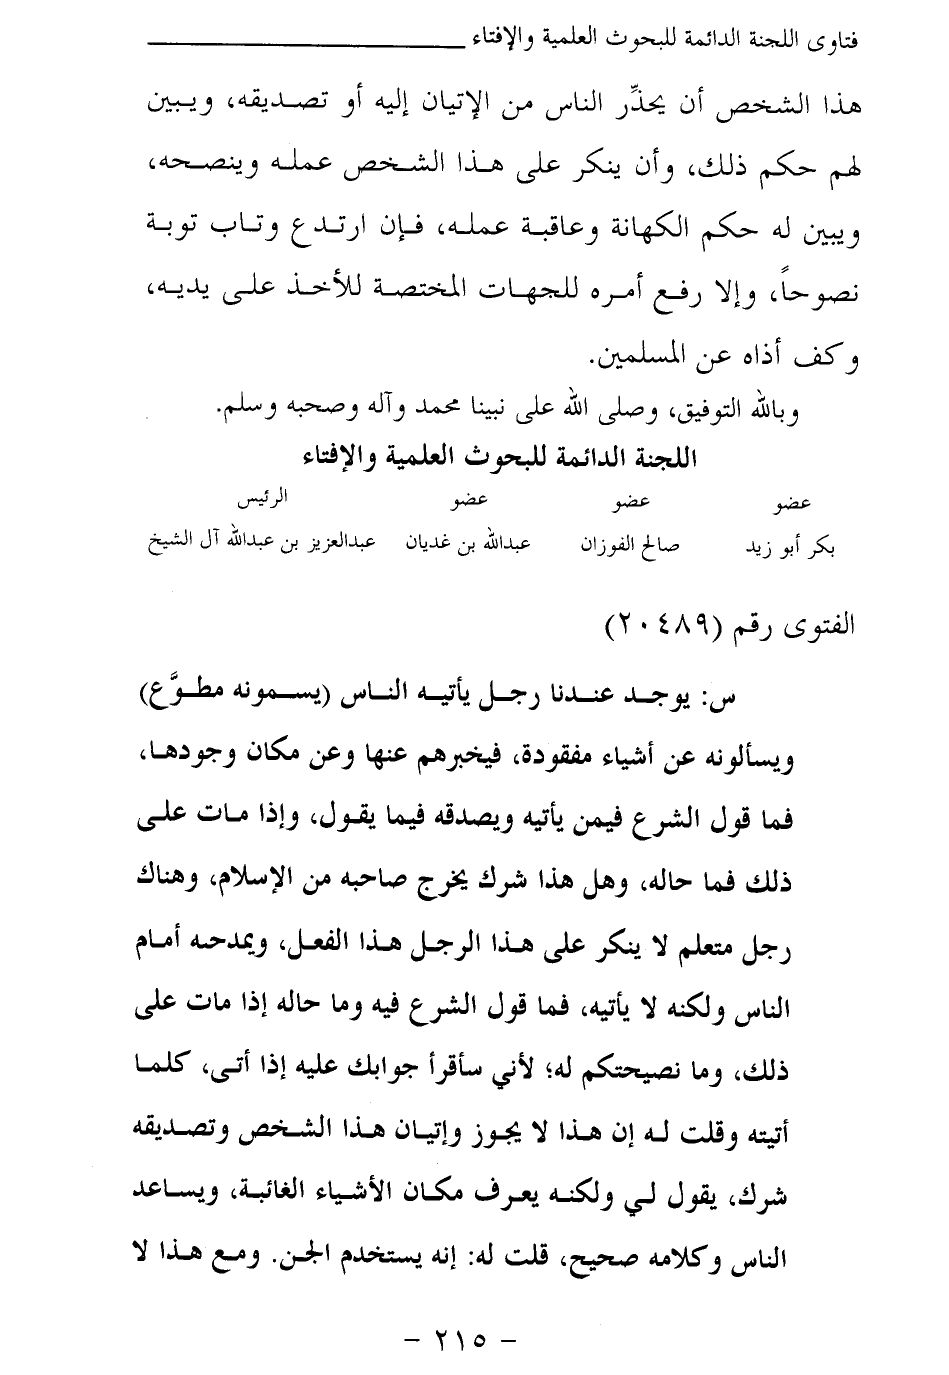 فتاوى اللجنة الدائمة للبحوث العلمية والإفتاء
هذا الشخص أن يحذِّر الناس من الإتيان إليه أو تصديقه، ويبين
لهم حكم ذلك، وأن ينكر على هذا الشخص عمله وينصحه،
ويبين له حكم الكهانة وعاقبة عمله، فإن ارتدع وتاب توبة
نصوحاً، وإلا رفع أمره للجهات المختصة للأخذ على يديه،
وكف أذاه عن المسلمين.
وبالله التوفيق، وصلى الله على نبينا محمد وآله وصحبه وسلم.
اللجنة الدائمة للبحوث العلمية والإفتاء
عضو عضو عضو الرئيس
بكر أبو زيد صالح الفوزان عبدالله بن غديان عبدالعزيز بن عبدالله آل الشيخ
الفتوى رقم (٢٠٤٨٩)
س: يوجد عندنا رجل يأتيه الناس (يسمونه مطوَّع)
ويسألونه عن أشياء مفقودة، فيخبرهم عنها وعن مكان وجودها،
فما قول الشرع فيمن يأتيه ويصدقه فيما يقول، وإذا مات على
ذلك فما حاله، وهل هذا شرك يخرج صاحبه من الإسلام، وهناك
رجل متعلم لا ينكر على هذا الرجل هذا الفعل، ويمدحه أمام
الناس ولكنه لا يأتيه، فما قول الشرع فيه وما حاله إذا مات على
ذلك، وما نصيحتكم له؛ لأني سأقرأ جوابك عليه إذا أتى، كلما
أتيته وقلت له إن هذا لا يجوز وإتيان هذا الشخص وتصديقه
شرك، يقول لي ولكنه يعرف مكان الأشياء الغائبة، ويساعد
الناس وكلامه صحيح، قلت له: إنه يستخدم الجن. ومع هذا لا
– ٢١٥ –